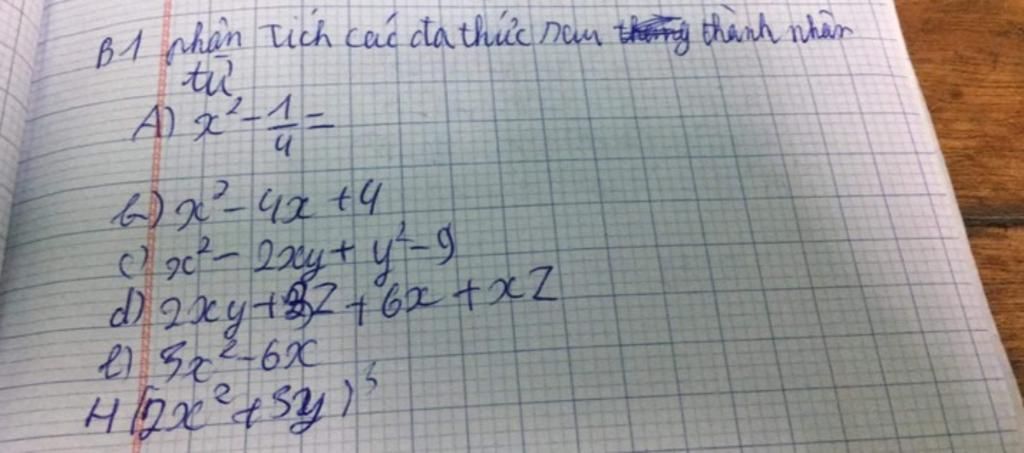 B1 phân tích các đa thức sau thành nhân
tử
A) x² - 1/4 =
b) x² - 4x + 4
c) x² - 2xy + y² - 9
d) 2xy + Z + 6x + xZ
e) 3x² - 6x
H (2x² + 3y)³